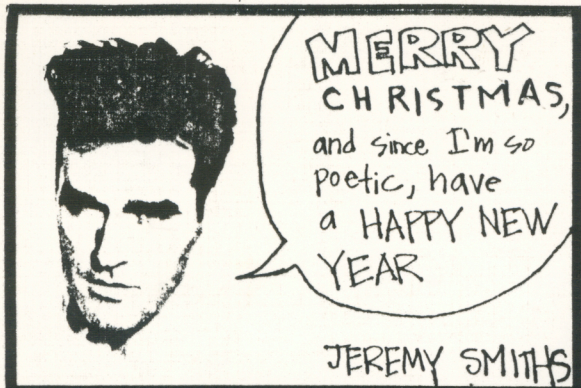 MERRY
CHRISTMAS,
and since I'm so
poetic, have
a HAPPY NEW
YEAR
JEREMY SMITHS